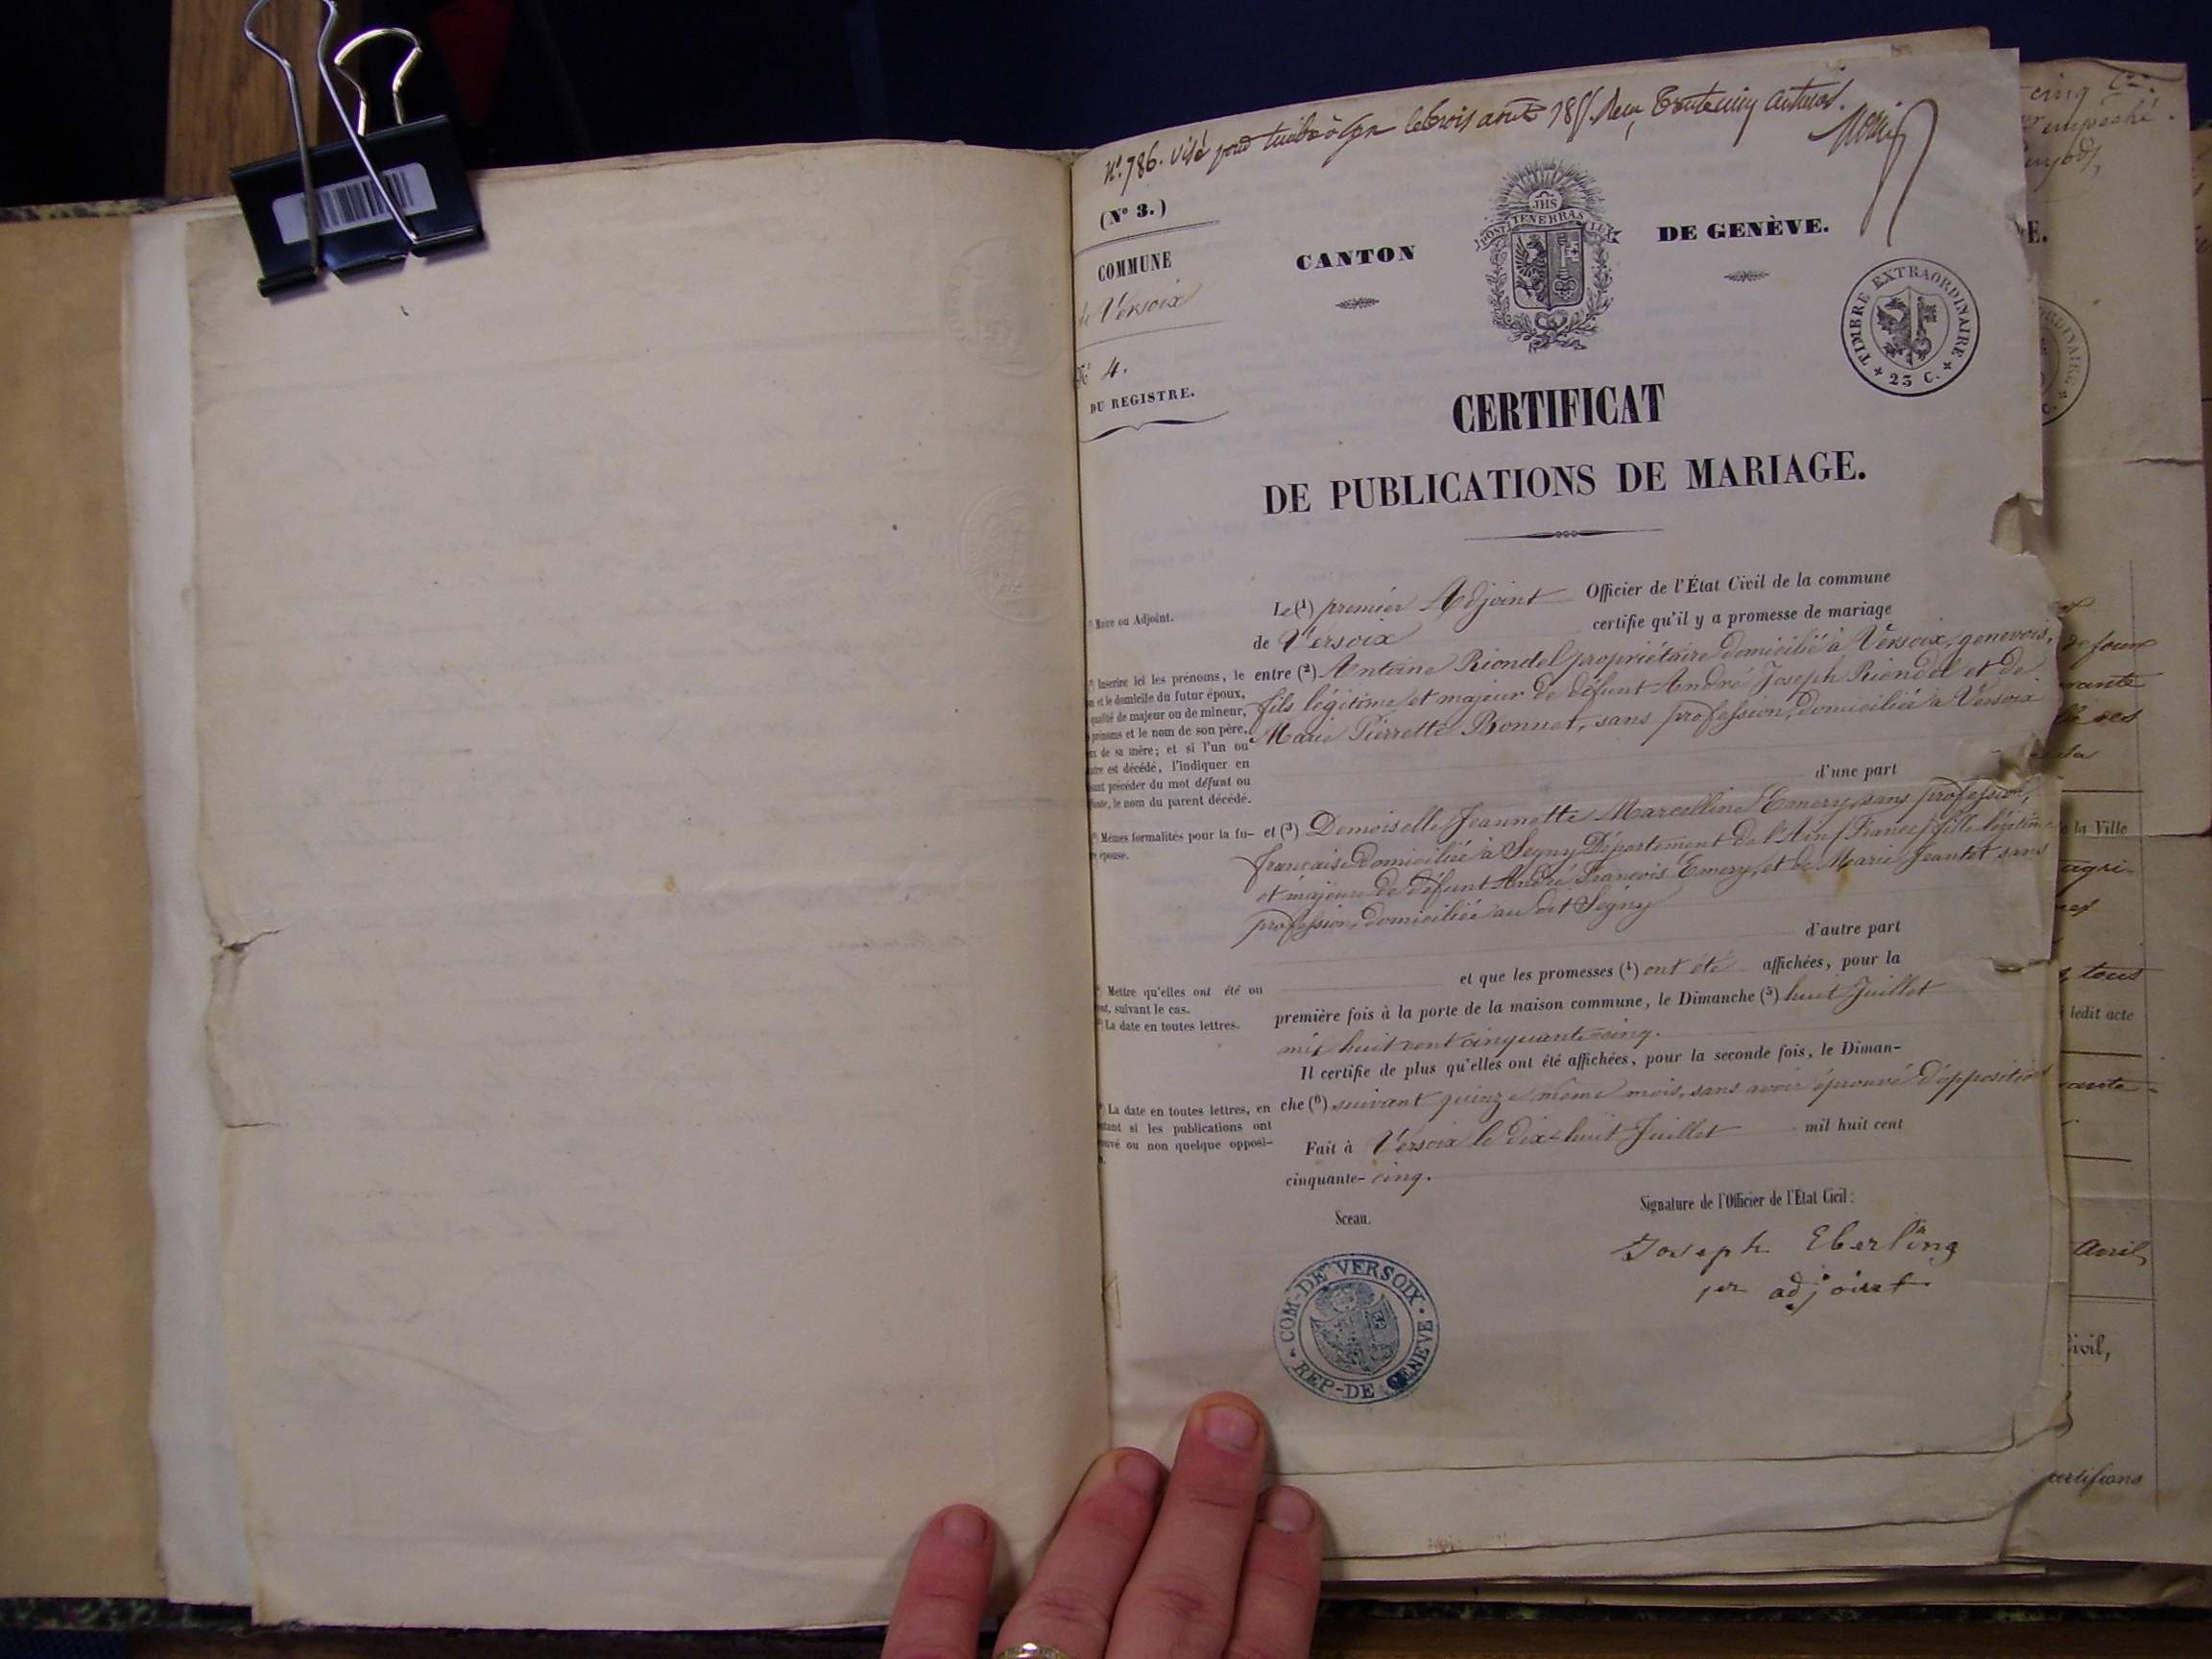 N° 786. Visé pour timbre à Gex le trois août 185 Reçu Trente cinq centimes.
(N° 3.)
COMMUNE
de Versoix
N° 4.
DU REGISTRE.
CANTON DE GENÈVE.
JHS
POST TENEBRAS LUX
TIMBRE EXTRAORDINAIRE
25 C.
CERTIFICAT
DE PUBLICATIONS DE MARIAGE.
Le (1) premier Adjoint Officier de l'État Civil de la commune
de Versoix certifie qu'il y a promesse de mariage
entre (2) Antoine Riondel propriétaire domicilié à Versoix, genevois,
fils légitime et majeur de défunt André Joseph Riondel et de
Marie Pierrette Bonnet, sans profession, domiciliée à Versoix
d'une part
et (3) Demoiselle Jeannette Marcelline Emery, sans profession,
française domiciliée à Segny Département de l'Ain (France) fille légitime
et majeure de défunt André François Emery, et de Marie Jeantet sans
profession, domiciliée au dit Segny
d'autre part
et que les promesses (4) ont été affichées, pour la
première fois à la porte de la maison commune, le Dimanche (5) huit Juillet
mil huit cent cinquante-cinq.
Il certifie de plus qu'elles ont été affichées, pour la seconde fois, le Diman-
che (6) suivant quinze même mois, sans avoir éprouvé d'opposition
Fait à Versoix le dix-huit Juillet mil huit cent
cinquante-cinq.
Sceau.
Signature de l'Officier de l'État Civil :
Joseph Eberling
1er adjoint
COM-DE VERSOIX
REP-DE GENEVE
Maire ou Adjoint.
Inscrire ici les prénoms, le
et le domicile du futur époux,
qualité de majeur ou de mineur,
prénoms et le nom de son père,
de sa mère; et si l'un ou
est décédé, l'indiquer en
précéder du mot défunt ou
le nom du parent décédé.
Mêmes formalités pour la fu-
épouse.
Mettre qu'elles ont été ou
suivant le cas.
La date en toutes lettres.
La date en toutes lettres, en
si les publications ont
ou non quelque opposi-
cinq
empêché.
E.
de la Ville
agri-
tous
ledit acte
Avril
ivil,
certifions